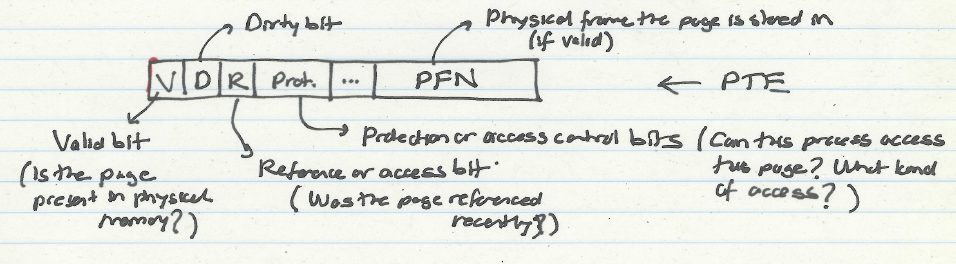 Dirty bit
Physical frame the page is stored in
(if valid)
V D R Prot. ... PFN
← PTE
Valid bit
(Is the page
present in physical
memory?)
Reference or access bit
(Was the page referenced
recently?)
Protection or access control bits (Can this process access
this page? What kind
of access?)